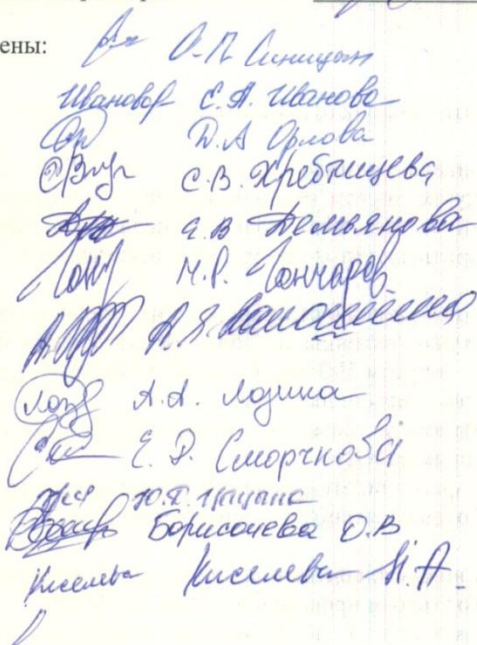 ены:
О.П. Синицын
Иванова Е.А. Иванова
Ор Д.А Орлова
С.В. Хребтищева
Е.В Демьянова
Гонч М.Р. Гончаров
А.Я.
Лоз А.А. Лозина
Е.Р. Сморчкова
Ю.П.
Борисочева О.В
Киселева Киселева Н.А.